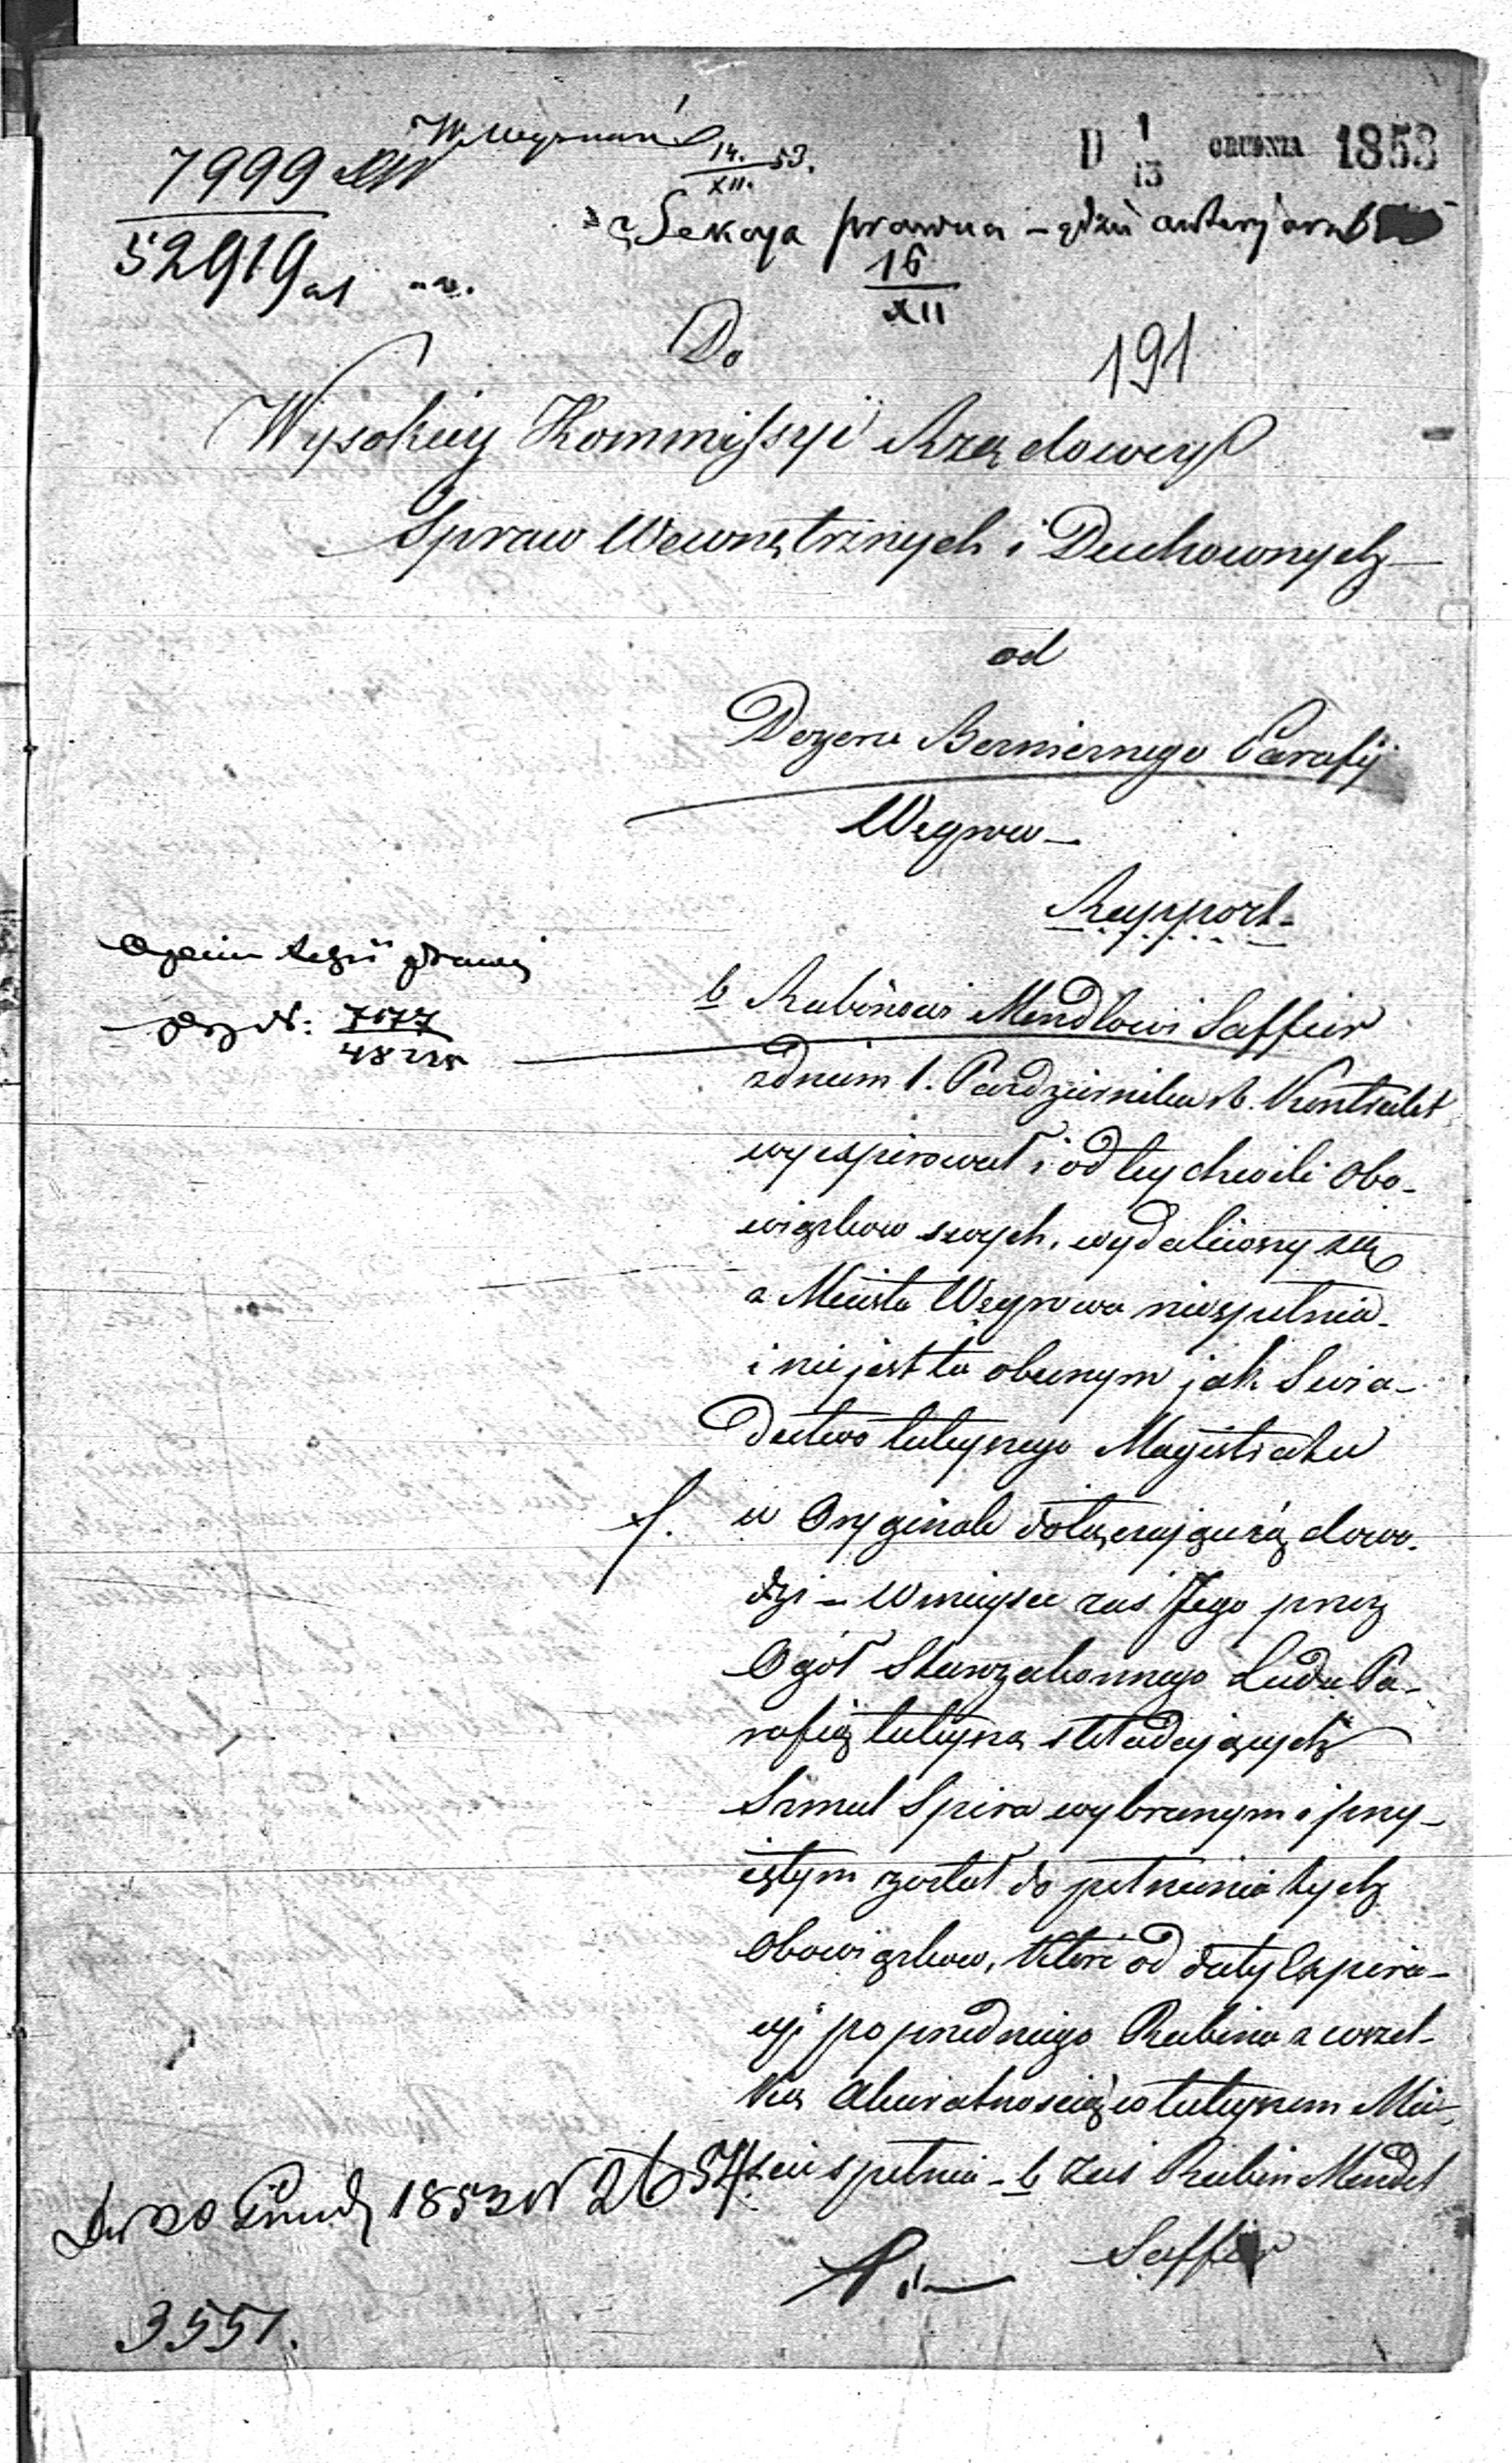 W. Wyznań
14. XII. 53.
D 1/13 GRUDNIA 1853
7999
52919
Sekcya prawna – gdzie
16
XII
191
Do
Wysokiey Kommissyi Rządowey
Spraw Wewnętrznych i Duchownych
od
Dozoru Bożniczego Parafij
Węgrow
Rapport
7177
48225
b Rabinowi Mendlowi Saffeir
z dniem 1. Października rb. Kontrakt
wyexpirował i od tey chwili obo-
wiązkow swych, wydaliwszy się
z Miasta Węgrowa niespełnia
i nie jest tu obecnym jak Swia-
dectwo tuteyszego Magistratu
w Oryginale dołączające się dowo-
dzi – W mieysce zaś Jego przez
Ogół Starozakonnego Ludu Pa-
rafią tuteyszą składających
Szmul Spira wybranym i przy-
iętym został do pełnienia tych
Obowiązkow, które od daty Expira-
cyi poprzedniego Rabina z wszel-
ką Akuratnością w tuteyszem Mie-
scie spełnia – b zaś Rabin Mendel
Saffeir
Dn 20 Grud 1853 N 26 54
3551.